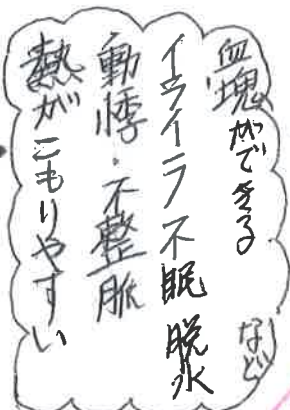 血塊ができる
イライラ不眠 脱水
動悸・不整脈
熱がこもりやすい
など